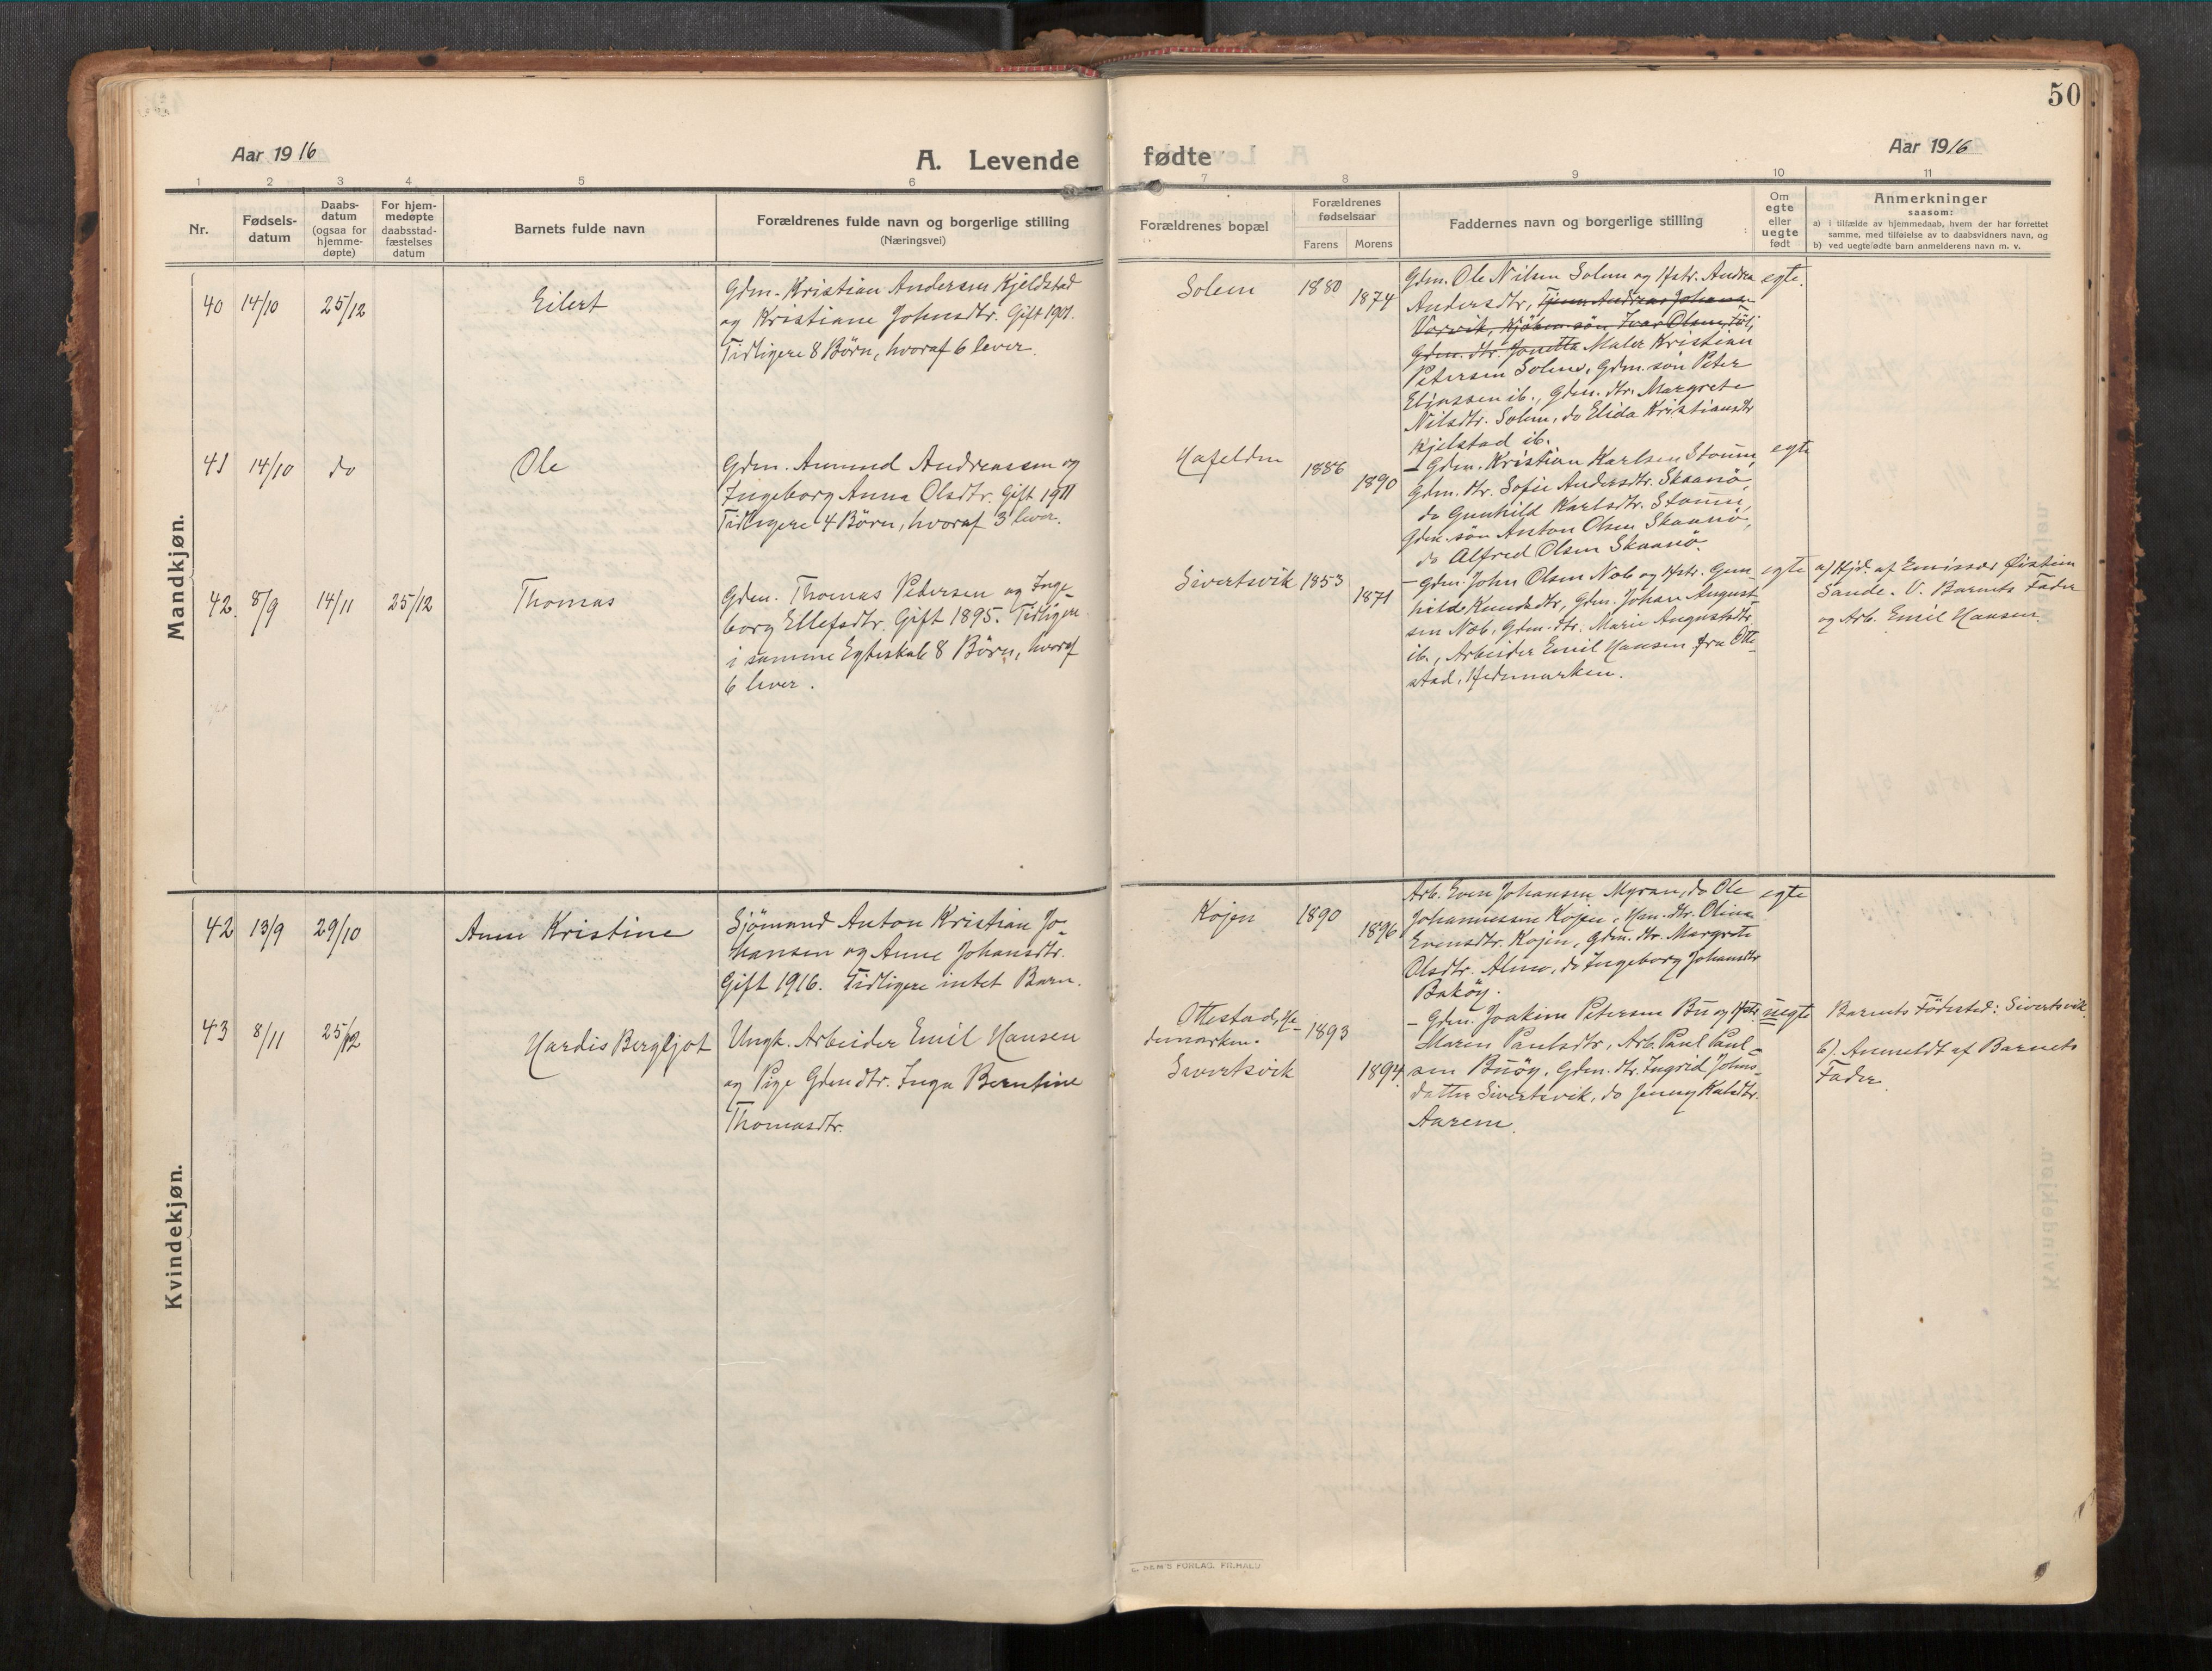 50
Aar 1916
A. Levende
fødte
Aar 1916
1 2 3 4 5 6 7 8 9 10 11
Nr.
Fødsels-
datum
Daabs-
datum
(ogsaa for
hjemme-
døpte)
For hjem-
medøpte
daabsstad-
fæstelses
datum
Barnets fulde navn
Forældrenes fulde navn og borgerlige stilling
(Næringsvei)
Forældrenes bopæl
Forældrenes
fødselsaar
Farens Morens
Faddernes navn og borgerlige stilling
Om
egte
eller
uegte
født
Anmerkninger
saasom:
a) i tilfælde av hjemmedaab, hvem der har forrettet
samme, med tilføielse av to daabsvidners navn, og
b) ved uegtefødte barn anmelderens navn m. v.
Mandkjøn.
40 14/10 25/12 Eilert
Gdm. Kristian Andersen Kjeldstad
og Kristiane Johnsdtr. Gift 1901.
Tidligere 8 Börn, hvoraf 6 lever.
Solem 1880 1874
Gdm. Ole Nilsen Solem og Hstr. Andrea
Andersdtr, Tjener Andreas Johansen
Vorvik, Kjöbm. sön Ivar Olsen,
Gdm. dtr. Jonetta Maler Kristian
Petersen Solem, Gdm. sön Peter
Eliassen ib., Gdm. dtr. Margrete
Nilsdtr. Solem, do Elida Kristiansdtr
Kjelstad ib.
egte.
41 14/10 do Ole
Gdm. Amund Andreassen og
Ingeborg Anna Olsdtr. Gift 1911
Tidligere 4 Börn, hvoraf 3 lever.
Hafeldm 1886 1890
- Gdm. Kristian Karlsen
Gdm. dtr. Sofie Andersdtr. Skaanö,
do Gunhild Karlsdtr.
Gdm. sön Anton Olsen Skaanö,
do Alfred Olsen Skaanö.
egte
42. 8/9 14/11 25/12 Thomas
Gdm. Thomas Petersen og Inge-
borg Ellefsdtr. Gift 1895. Tidligere
i samme Egteskab 8 Börn, hvoraf
6 lever.
Sivertsvik 1853 1871
- Gdm. John Olsen Næb og Hstr. Gun-
hild Knudsdtr, Gdm. Johan August-
sen Næb, Gdm. dtr. Marie Augustsdtr.
ib., Arbeider Emil Hansen fra Otte-
stad, Hedemarken.
egte
a) Hjd. af Emissær Øistein
Sande. V. Barnets Fader
og Arb. Emil Hansen.
Kvindekjøn.
42 13/9 29/10 Anne Kristine
Sjömand Anton Kristian Jo-
hansen og Anne Johansdtr.
Gift 1916. Tidligere intet Barn.
Kojen 1890 1896
Arb. Even Johansen Myran, do Ole
Johannessen Kojen, Hm. dtr. Olina
Evensdtr. Kojen, Gdm. dtr. Margrete
Olsdtr. Almo, do Ingeborg Johansdtr
Baköy.
egte
43 8/11 25/12 Hardis Bergljot
Ungk. Arbeider Emil Hansen
og Pige Gdmdtr. Inga Berntine
Thomasdtr.
Ottestad, He-
demarken. 1893
Sivertsvik 1894
- Gdm. Joakim Petersen Bu og Hstr.
Maren Paulsdtr, Arb. Paul Paul-
sen Buöy, Gdm. dtr. Ingrid Johns-
datter Sivertsvik, do Jenny
Aarem.
uegte
Barnets Födested: Sivertsvik.
b). Anmeldt af Barnets
Fader.
SEM'S FORLAG. FR.HALD